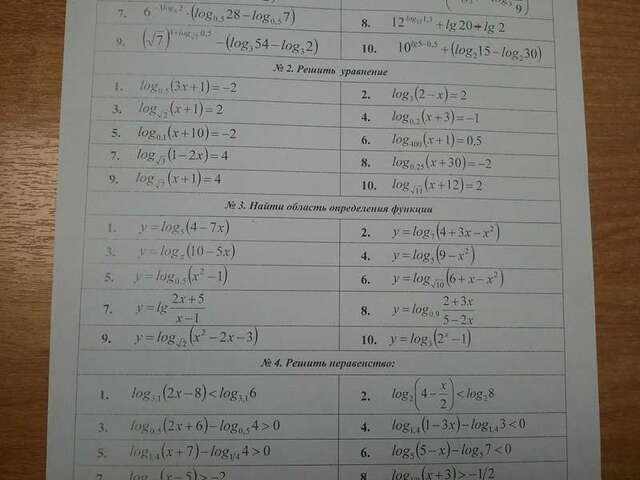 7. 6^(-3log₆2)·(log₀,₅28−log₀,₅7)
8. 12^(log₁₂1,3)+lg20+lg2
9. (√7)^(4+log√7 0,5)−(log₃54−log₃2)
10. 10^(lg5−0,5)+(log₂15−log₂30)
№ 2. Решить уравнение
1. log₀,₅(3x+1)=−2
2. log₃(2−x)=2
3. log√2(x+1)=2
4. log₀,₂(x+3)=−1
5. log₀,₁(x+10)=−2
6. log₄₀₀(x+1)=0,5
7. log√3(1−2x)=4
8. log₀,₂₅(x+30)=−2
9. log√7(x+1)=4
10. log√11(x+12)=2
№ 3. Найти область определения функции
1. y=log₅(4−7x)
2. y=log₇(4+3x−x²)
3. y=log₅(10−5x)
4. y=log₅(9−x²)
5. y=log₀,₅(x²−1)
6. y=log√10(6+x−x²)
7. y=lg (2x+5)/(x−1)
8. y=log₀,₉ (2+3x)/(5−2x)
9. y=log√2(x²−2x−3)
10. y=log₃(2ˣ−1)
№ 4. Решить неравенство:
1. log₃,₁(2x−8)<log₃,₁6
2. log₂(4−x/2)<log₂8
3. log₀,₅(2x+6)−log₀,₅4>0
4. log₁,₄(1−3x)−log₁,₄3<0
5. log₁/₄(x+7)−log₁/₄4>0
6. log₅(5−x)−log₅7<0
7. (x−5)>−2
8. (x+3)>−1/2